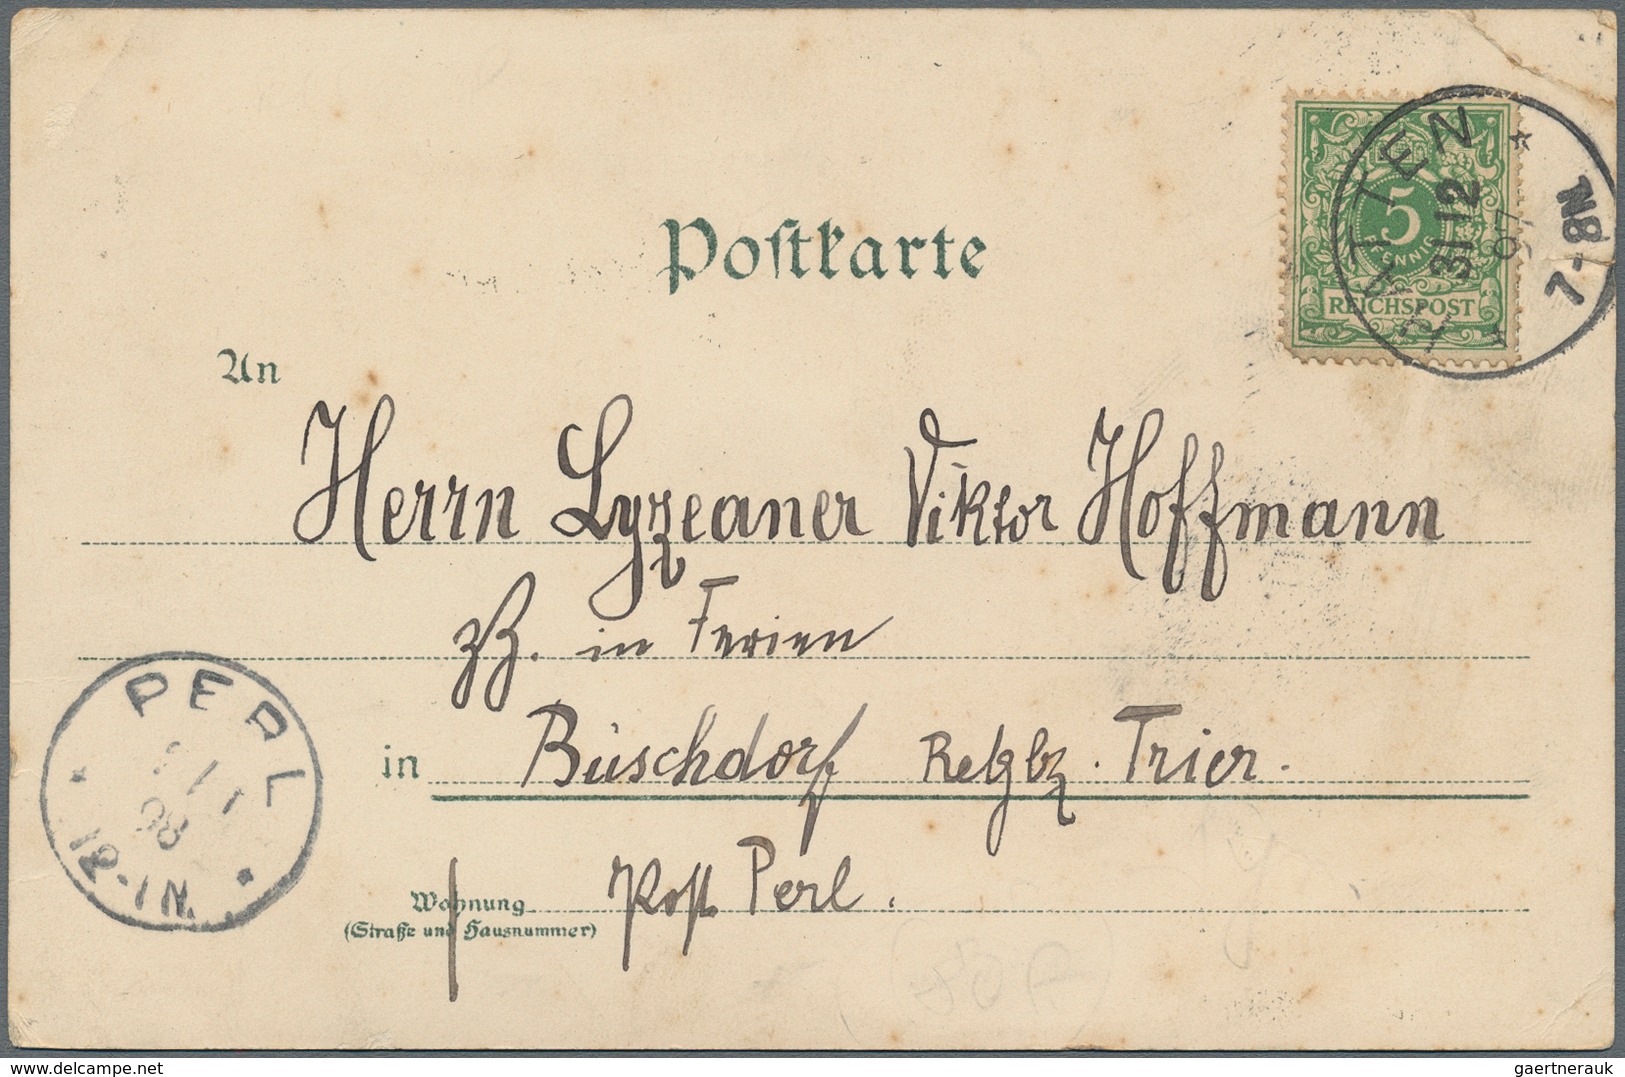 Postkarte
5
PFENNIG
REICHSPOST
31 12
97
7-8N
An
Herrn Lyzeaner Viktor Hoffmann
zZ. in Ferien
in Büschdorf Regbz. Trier.
Wohnung
(Straße und Hausnummer)
Post Perl.
PERL
98
12-1N.
delcampe.net
gaertnerauk